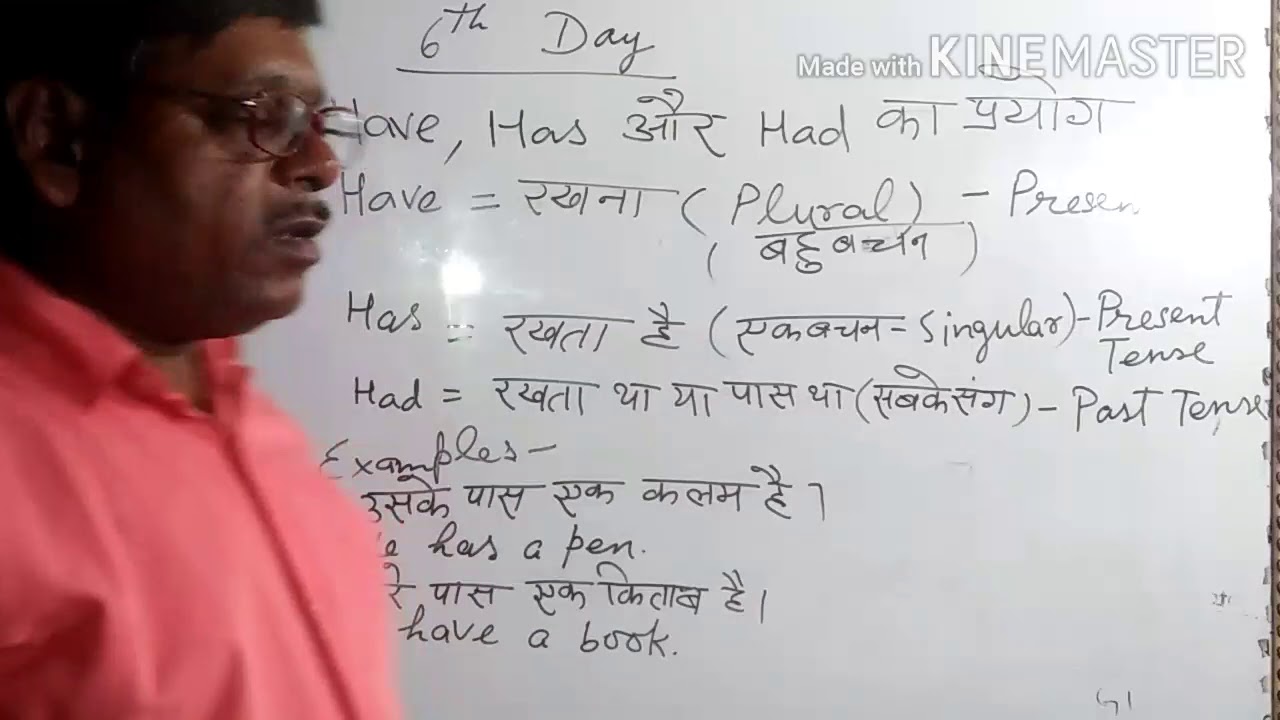 6th Day
Made with KINEMASTER
Have, Has और Had का प्रयोग
Have = रखना (Plural) - Presen
(बहुबचन)
Has = रखता है (एकबचन = Singular) - Present
Tense
Had = रखता था या पास था (सबके संग) - Past Tense
Examples -
उसके पास एक कलम है।
has a pen.
रे पास एक किताब है।
have a book.